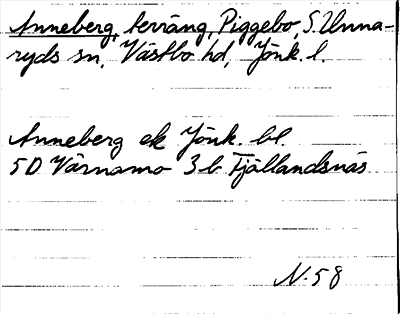 Anneberg, terräng, Piggebo, S. Unna-
ryds sn, Västbo hd, Jönk. l.
Anneberg ek Jönk. bl.
5D Värnamo 3b Fjällandsnäs
N. 58